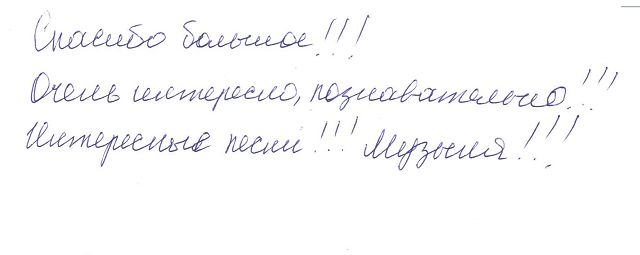 Спасибо большое!!!
Очень интересно, познавательно!!!
Интересные песни!!! Музыка!!!